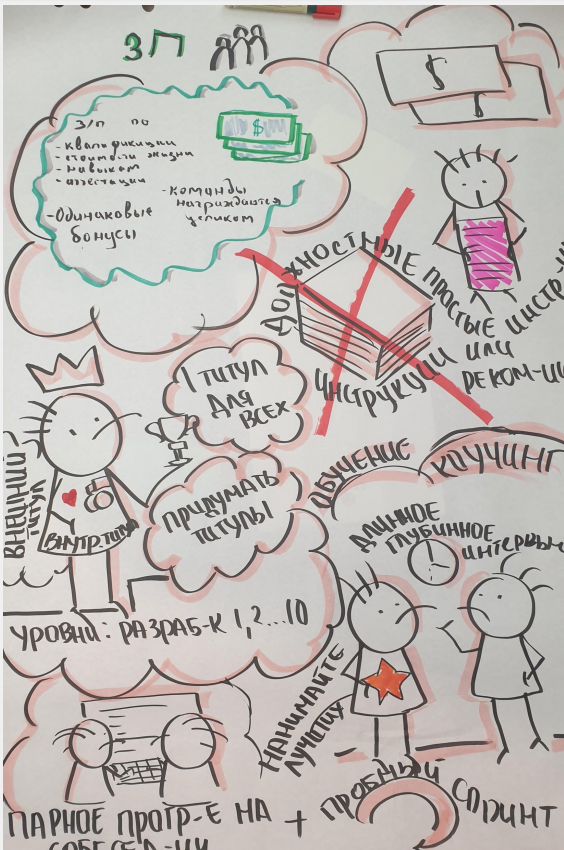 ЗП
$
$
З/П ПО
- квалификации
- стоимости жизни
- навыкам
- аттестации
$
- Одинаковые
бонусы
- команды
награждаются
целиком
ДОЛЖНОСТНЫЕ
ИНСТРУКЦИИ
ПРОСТЫЕ
ИЛИ
РЕКОМ-
1 ТИТУЛ
ДЛЯ
ВСЕХ
ПРИДУМАТЬ
ТИТУЛЫ
ВНЕШНИЙ
ТИТУЛ
ВНУТР. ТИТУЛ
УРОВНИ: РАЗРАБ-К 1, 2...10
ОБУЧЕНИЕ
КОУЧИНГ
ДЛИННОЕ
ГЛУБИННОЕ
ИНТЕРВЬЮ
НАНИМАЙТЕ
ЛУЧШИХ
ПАРНОЕ ПРОГР-Е НА
+ ПРОБНЫЙ СПРИНТ